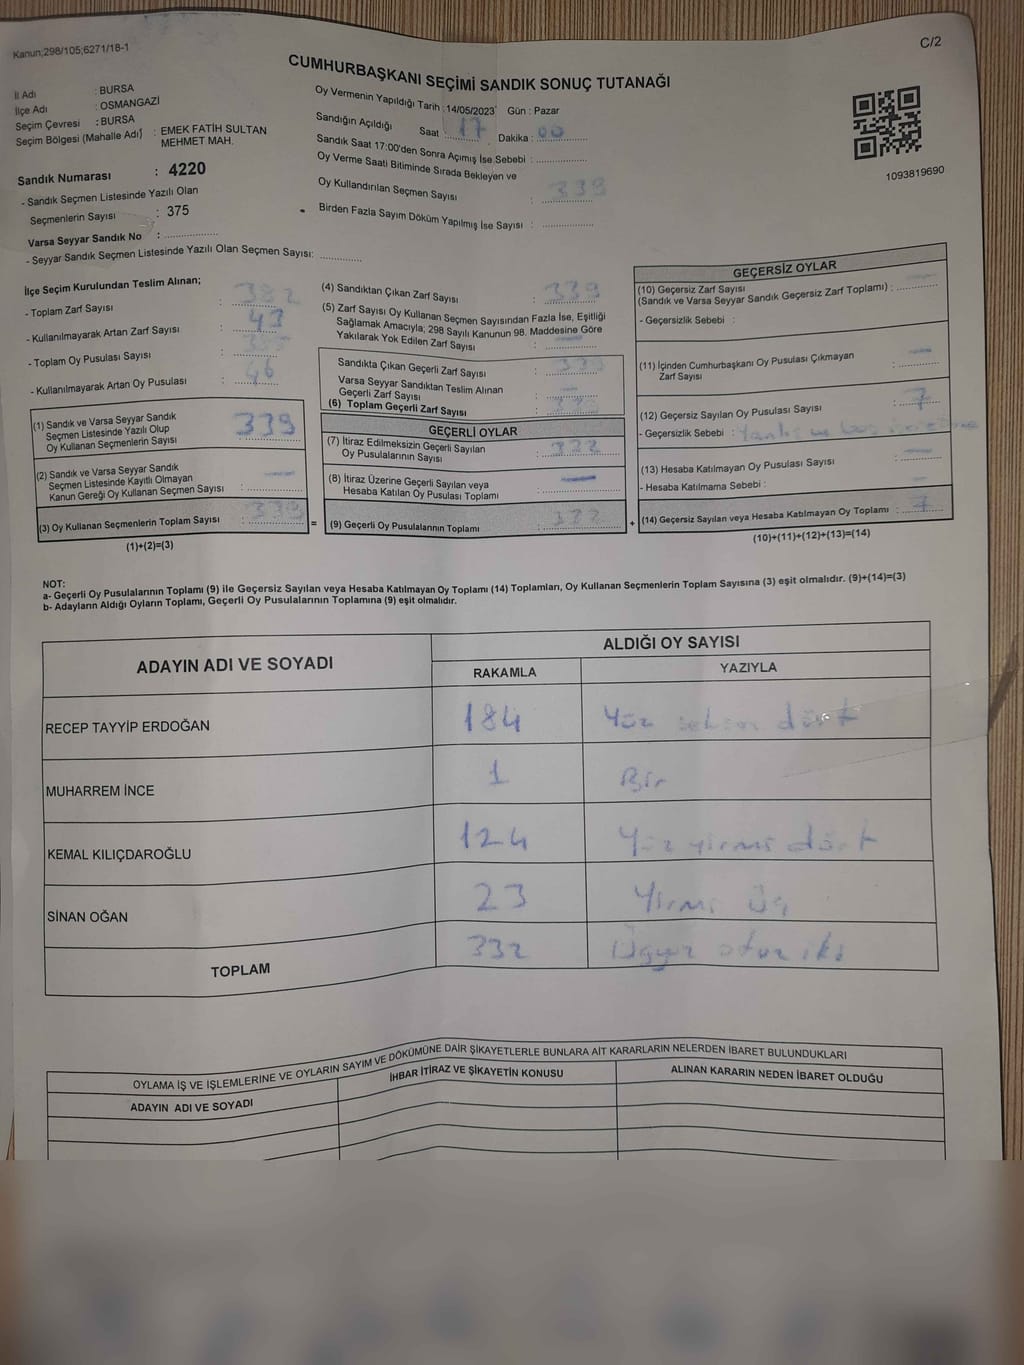 Kanun;298/105;6271/18-1
C/2
CUMHURBAŞKANI SEÇİMİ SANDIK SONUÇ TUTANAĞI
İl Adı : BURSA
İlçe Adı : OSMANGAZİ
Seçim Çevresi : BURSA
Seçim Bölgesi (Mahalle Adı) : EMEK FATİH SULTAN
MEHMET MAH.
Sandık Numarası : 4220
- Sandık Seçmen Listesinde Yazılı Olan
Seçmenlerin Sayısı : 375
Varsa Seyyar Sandık No :
- Seyyar Sandık Seçmen Listesinde Yazılı Olan Seçmen Sayısı:
Oy Vermenin Yapıldığı Tarih : 14/05/2023 Gün : Pazar
Sandığın Açıldığı Saat : 17 Dakika : 00
Sandık Saat 17:00'den Sonra Açımış İse Sebebi :
Oy Verme Saati Bitiminde Sırada Bekleyen ve
Oy Kullandırılan Seçmen Sayısı : 339
Birden Fazla Sayım Döküm Yapılmış İse Sayısı :
1093819690
İlçe Seçim Kurulundan Teslim Alınan;
- Toplam Zarf Sayısı : 382
- Kullanılmayarak Artan Zarf Sayısı : 43
- Toplam Oy Pusulası Sayısı :
- Kullanılmayarak Artan Oy Pusulası : 46
(1) Sandık ve Varsa Seyyar Sandık
Seçmen Listesinde Yazılı Olup
Oy Kullanan Seçmenlerin Sayısı : 339
(2) Sandık ve Varsa Seyyar Sandık
Seçmen Listesinde Kayıtlı Olmayan
Kanun Gereği Oy Kullanan Seçmen Sayısı :
(3) Oy Kullanan Seçmenlerin Toplam Sayısı : 339
(1)+(2)=(3)
(4) Sandıktan Çıkan Zarf Sayısı : 339
(5) Zarf Sayısı Oy Kullanan Seçmen Sayısından Fazla İse, Eşitliği
Sağlamak Amacıyla; 298 Sayılı Kanunun 98. Maddesine Göre
Yakılarak Yok Edilen Zarf Sayısı :
Sandıkta Çıkan Geçerli Zarf Sayısı : 339
Varsa Seyyar Sandıktan Teslim Alınan
Geçerli Zarf Sayısı :
(6) Toplam Geçerli Zarf Sayısı :
GEÇERLİ OYLAR
(7) İtiraz Edilmeksizin Geçerli Sayılan
Oy Pusulalarının Sayısı : 332
(8) İtiraz Üzerine Geçerli Sayılan veya
Hesaba Katılan Oy Pusulası Toplamı :
=
(9) Geçerli Oy Pusulalarının Toplamı : 332
+
GEÇERSİZ OYLAR
(10) Geçersiz Zarf Sayısı
(Sandık ve Varsa Seyyar Sandık Geçersiz Zarf Toplamı) :
- Geçersizlik Sebebi :
(11) İçinden Cumhurbaşkanı Oy Pusulası Çıkmayan
Zarf Sayısı :
(12) Geçersiz Sayılan Oy Pusulası Sayısı : 7
- Geçersizlik Sebebi :
(13) Hesaba Katılmayan Oy Pusulası Sayısı :
- Hesaba Katılmama Sebebi :
(14) Geçersiz Sayılan veya Hesaba Katılmayan Oy Toplamı : 7
(10)+(11)+(12)+(13)=(14)
NOT:
a- Geçerli Oy Pusulalarının Toplamı (9) ile Geçersiz Sayılan veya Hesaba Katılmayan Oy Toplamı (14) Toplamları, Oy Kullanan Seçmenlerin Toplam Sayısına (3) eşit olmalıdır. (9)+(14)=(3)
b- Adayların Aldığı Oyların Toplamı, Geçerli Oy Pusulalarının Toplamına (9) eşit olmalıdır.
ADAYIN ADI VE SOYADI
ALDIĞI OY SAYISI
RAKAMLA YAZIYLA
RECEP TAYYİP ERDOĞAN 184 Yüz seksen dört
MUHARREM İNCE 1 Bir
KEMAL KILIÇDAROĞLU 124 Yüz yirmi dört
SİNAN OĞAN 23 Yirmi üç
TOPLAM 332 Üçyüz otuz iki
OYLAMA İŞ VE İŞLEMLERİNE VE OYLARIN SAYIM VE DÖKÜMÜNE DAİR ŞİKAYETLERLE BUNLARA AİT KARARLARIN NELERDEN İBARET BULUNDUKLARI
ADAYIN ADI VE SOYADI İHBAR İTİRAZ VE ŞİKAYETİN KONUSU ALINAN KARARIN NEDEN İBARET OLDUĞU